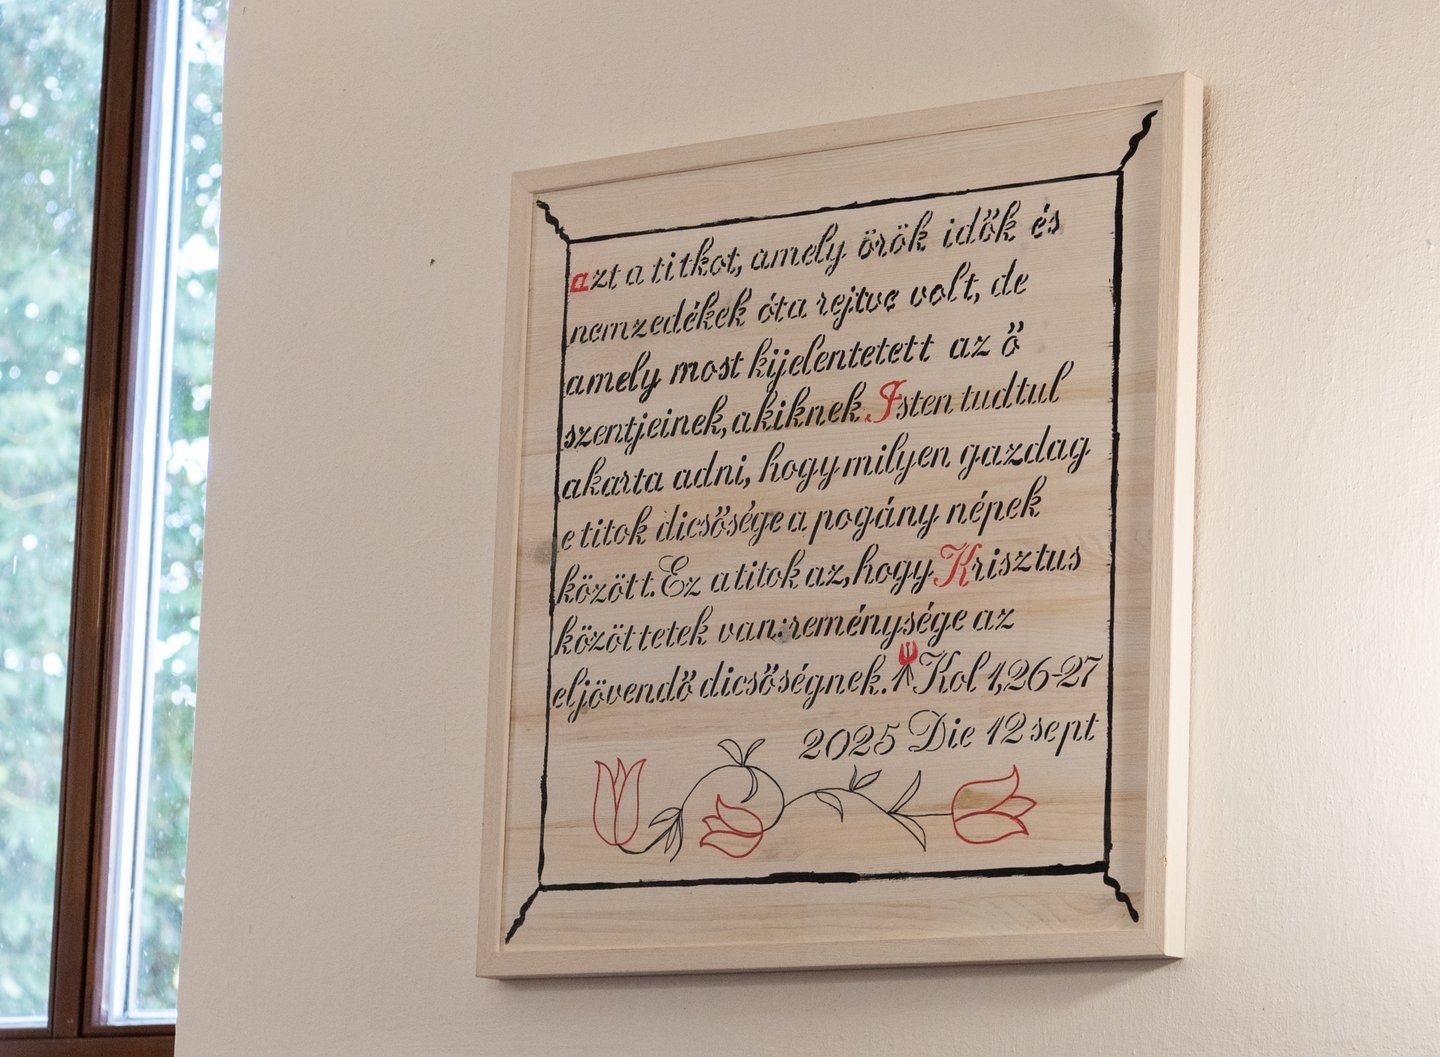 azt a titkot, amely örök idők és
nemzedékek óta rejtve volt, de
amely most kijelentetett az ő
szentjeinek, akiknek Isten tudtul
akarta adni, hogy milyen gazdag
e titok dicsősége a pogány népek
között. Ez a titok az, hogy Krisztus
közöttetek van: reménysége az
eljövendő dicsőségnek. Kol 1,26-27
2025 Die 12 sept